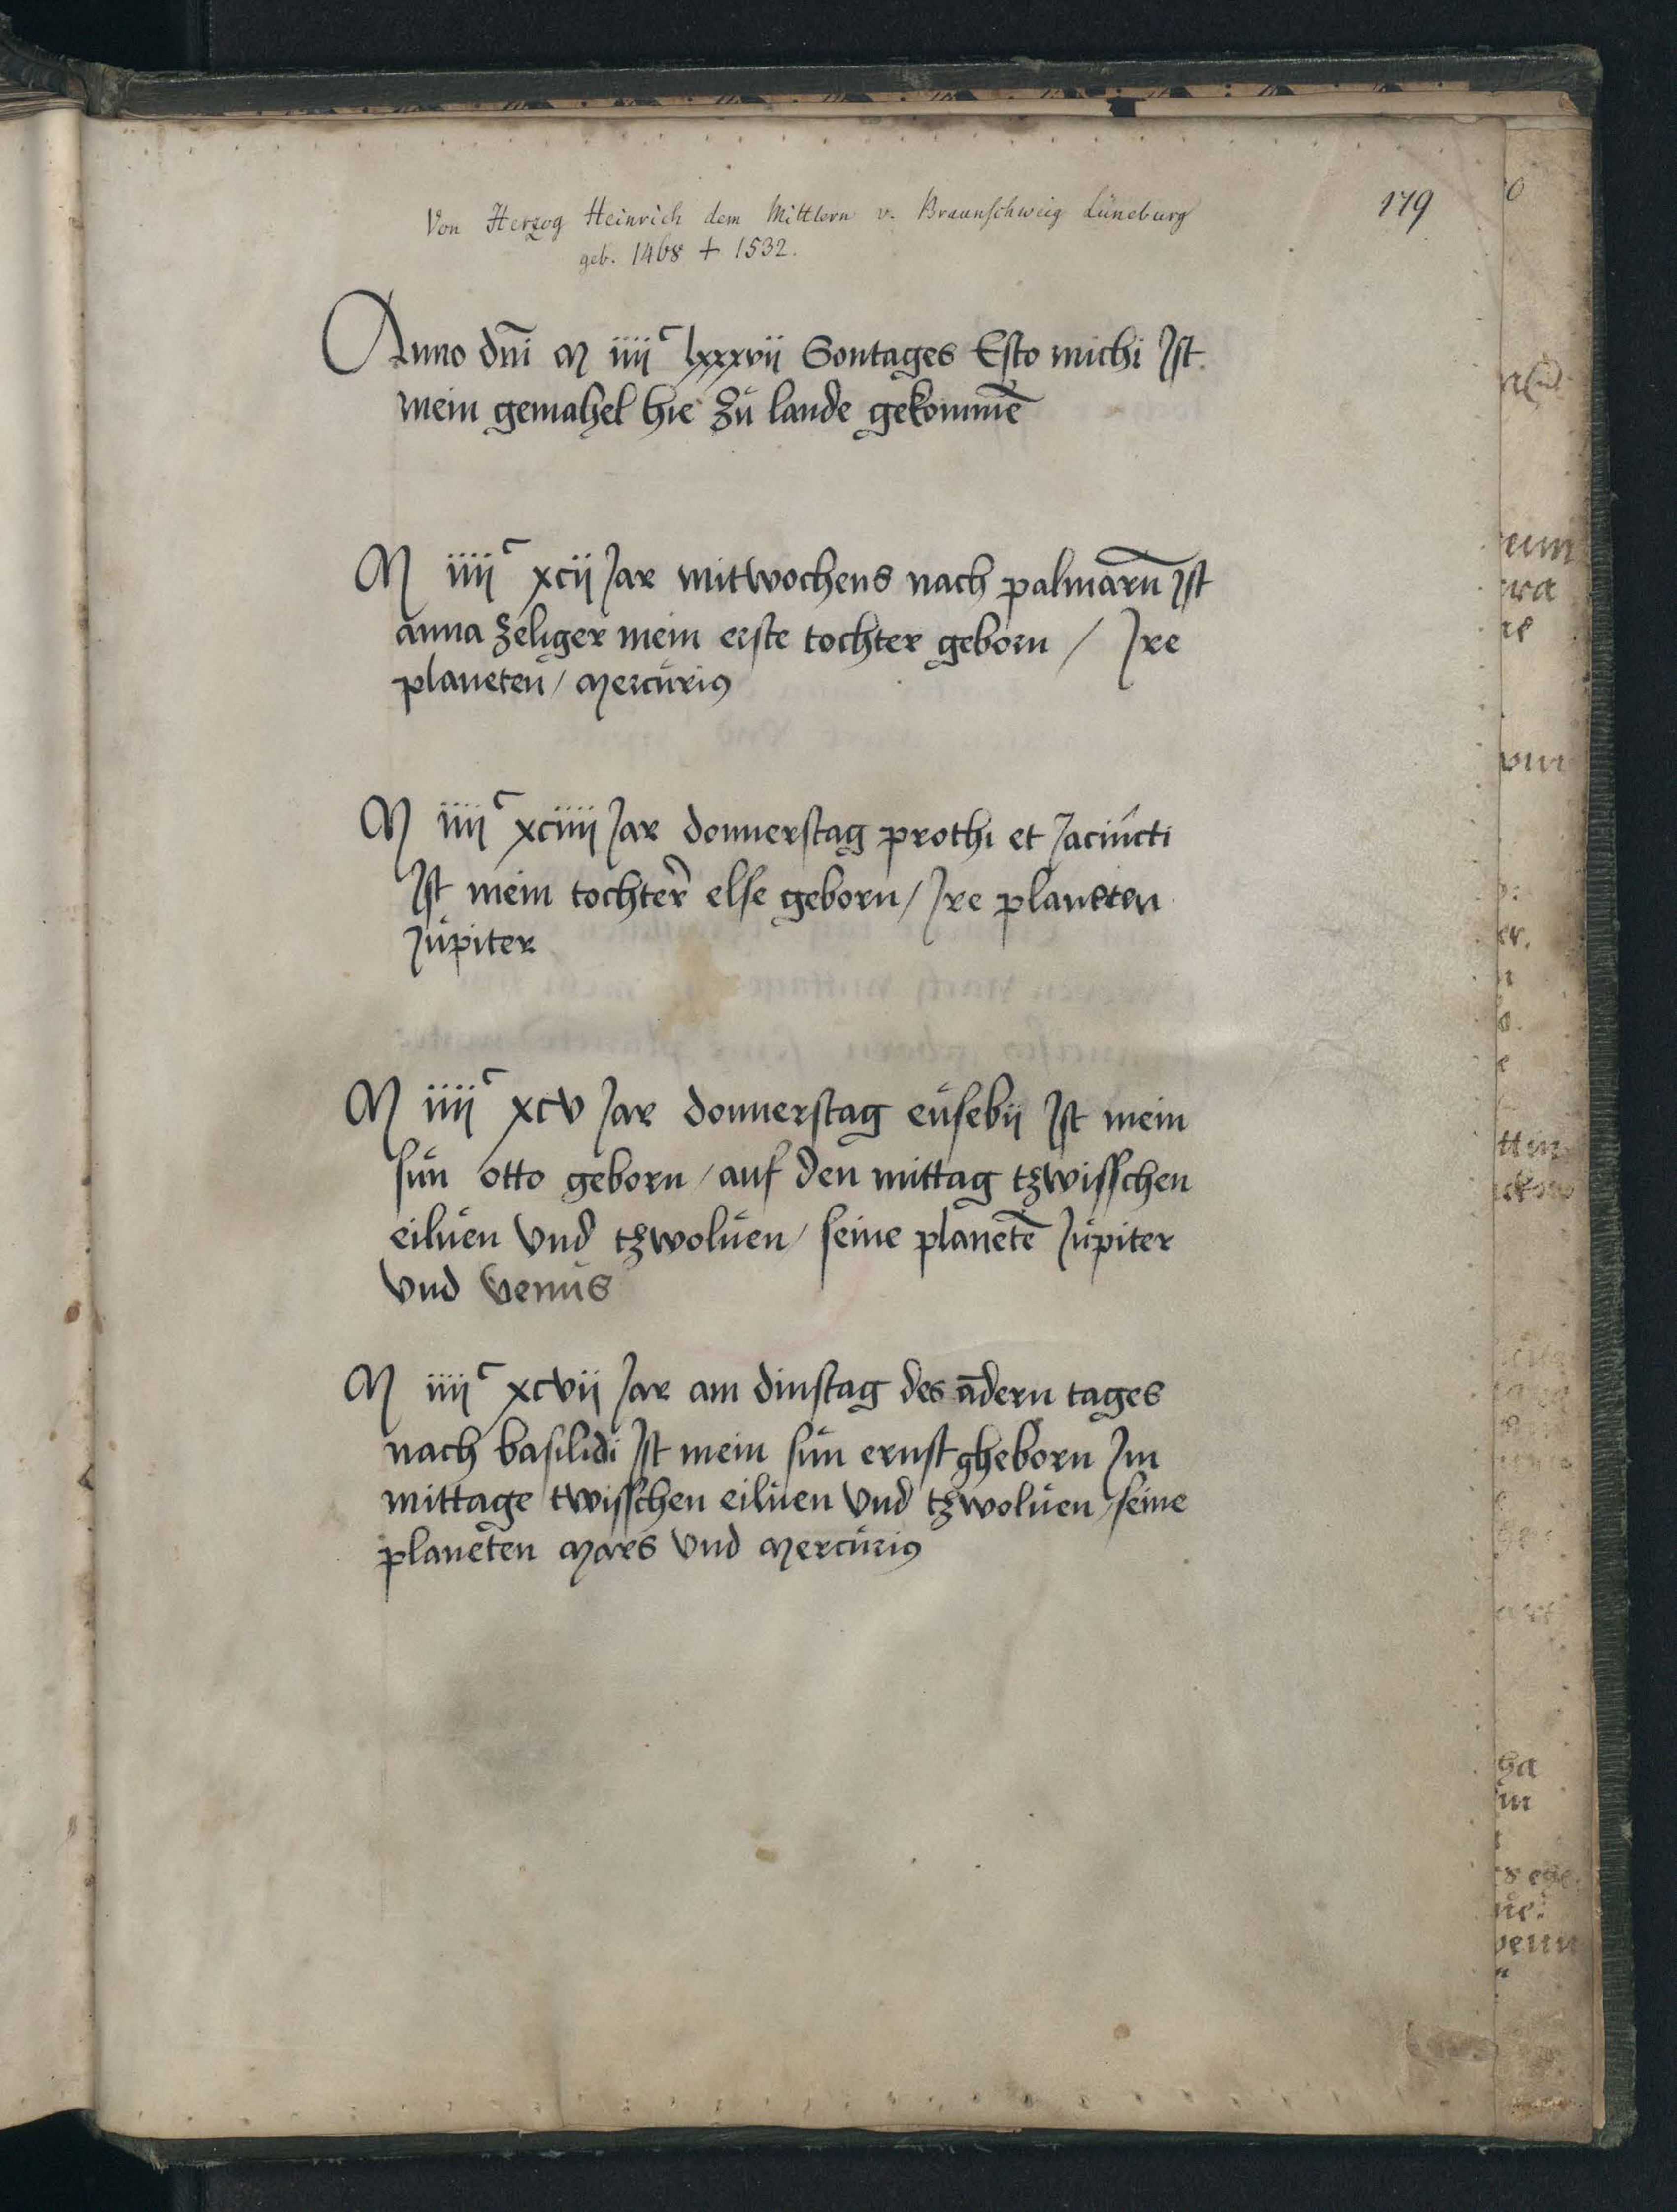 179
Von Herzog Heinrich dem Mittlern v. Braunschweig Lüneburg
geb. 1468 + 1532.
Anno dn̄i M iiiiᶜ lxxxvii Sontages Esto michi Ist
mein gemahel hie zu lande gekommē
M iiiiᶜ xcii Jar mitwochens nach palmarū Ist
anna zeliger mein erste tochter geborn / Ire
planeten / Mercuriꝰ
M iiiiᶜ xciiii Jar donnerstag prothi et Jacincti
Ist mein tochter else geborn / Ire planeten
Jupiter
M iiiiᶜ xcv Jar donnerstag eusebii Ist mein
sun otto geborn / auf den mittag tzwisschen
eiluen vnd tzwoluen / seine planetē Jupiter
vnd Venus
M iiiiᶜ xcvii Jar am dinstag des ādern tages
nach basilidi Ist mein sun ernst gheborn Im
mittage twisschen eiluen vnd tzwoluen / seine
planeten Mars vnd Mercuriꝰ